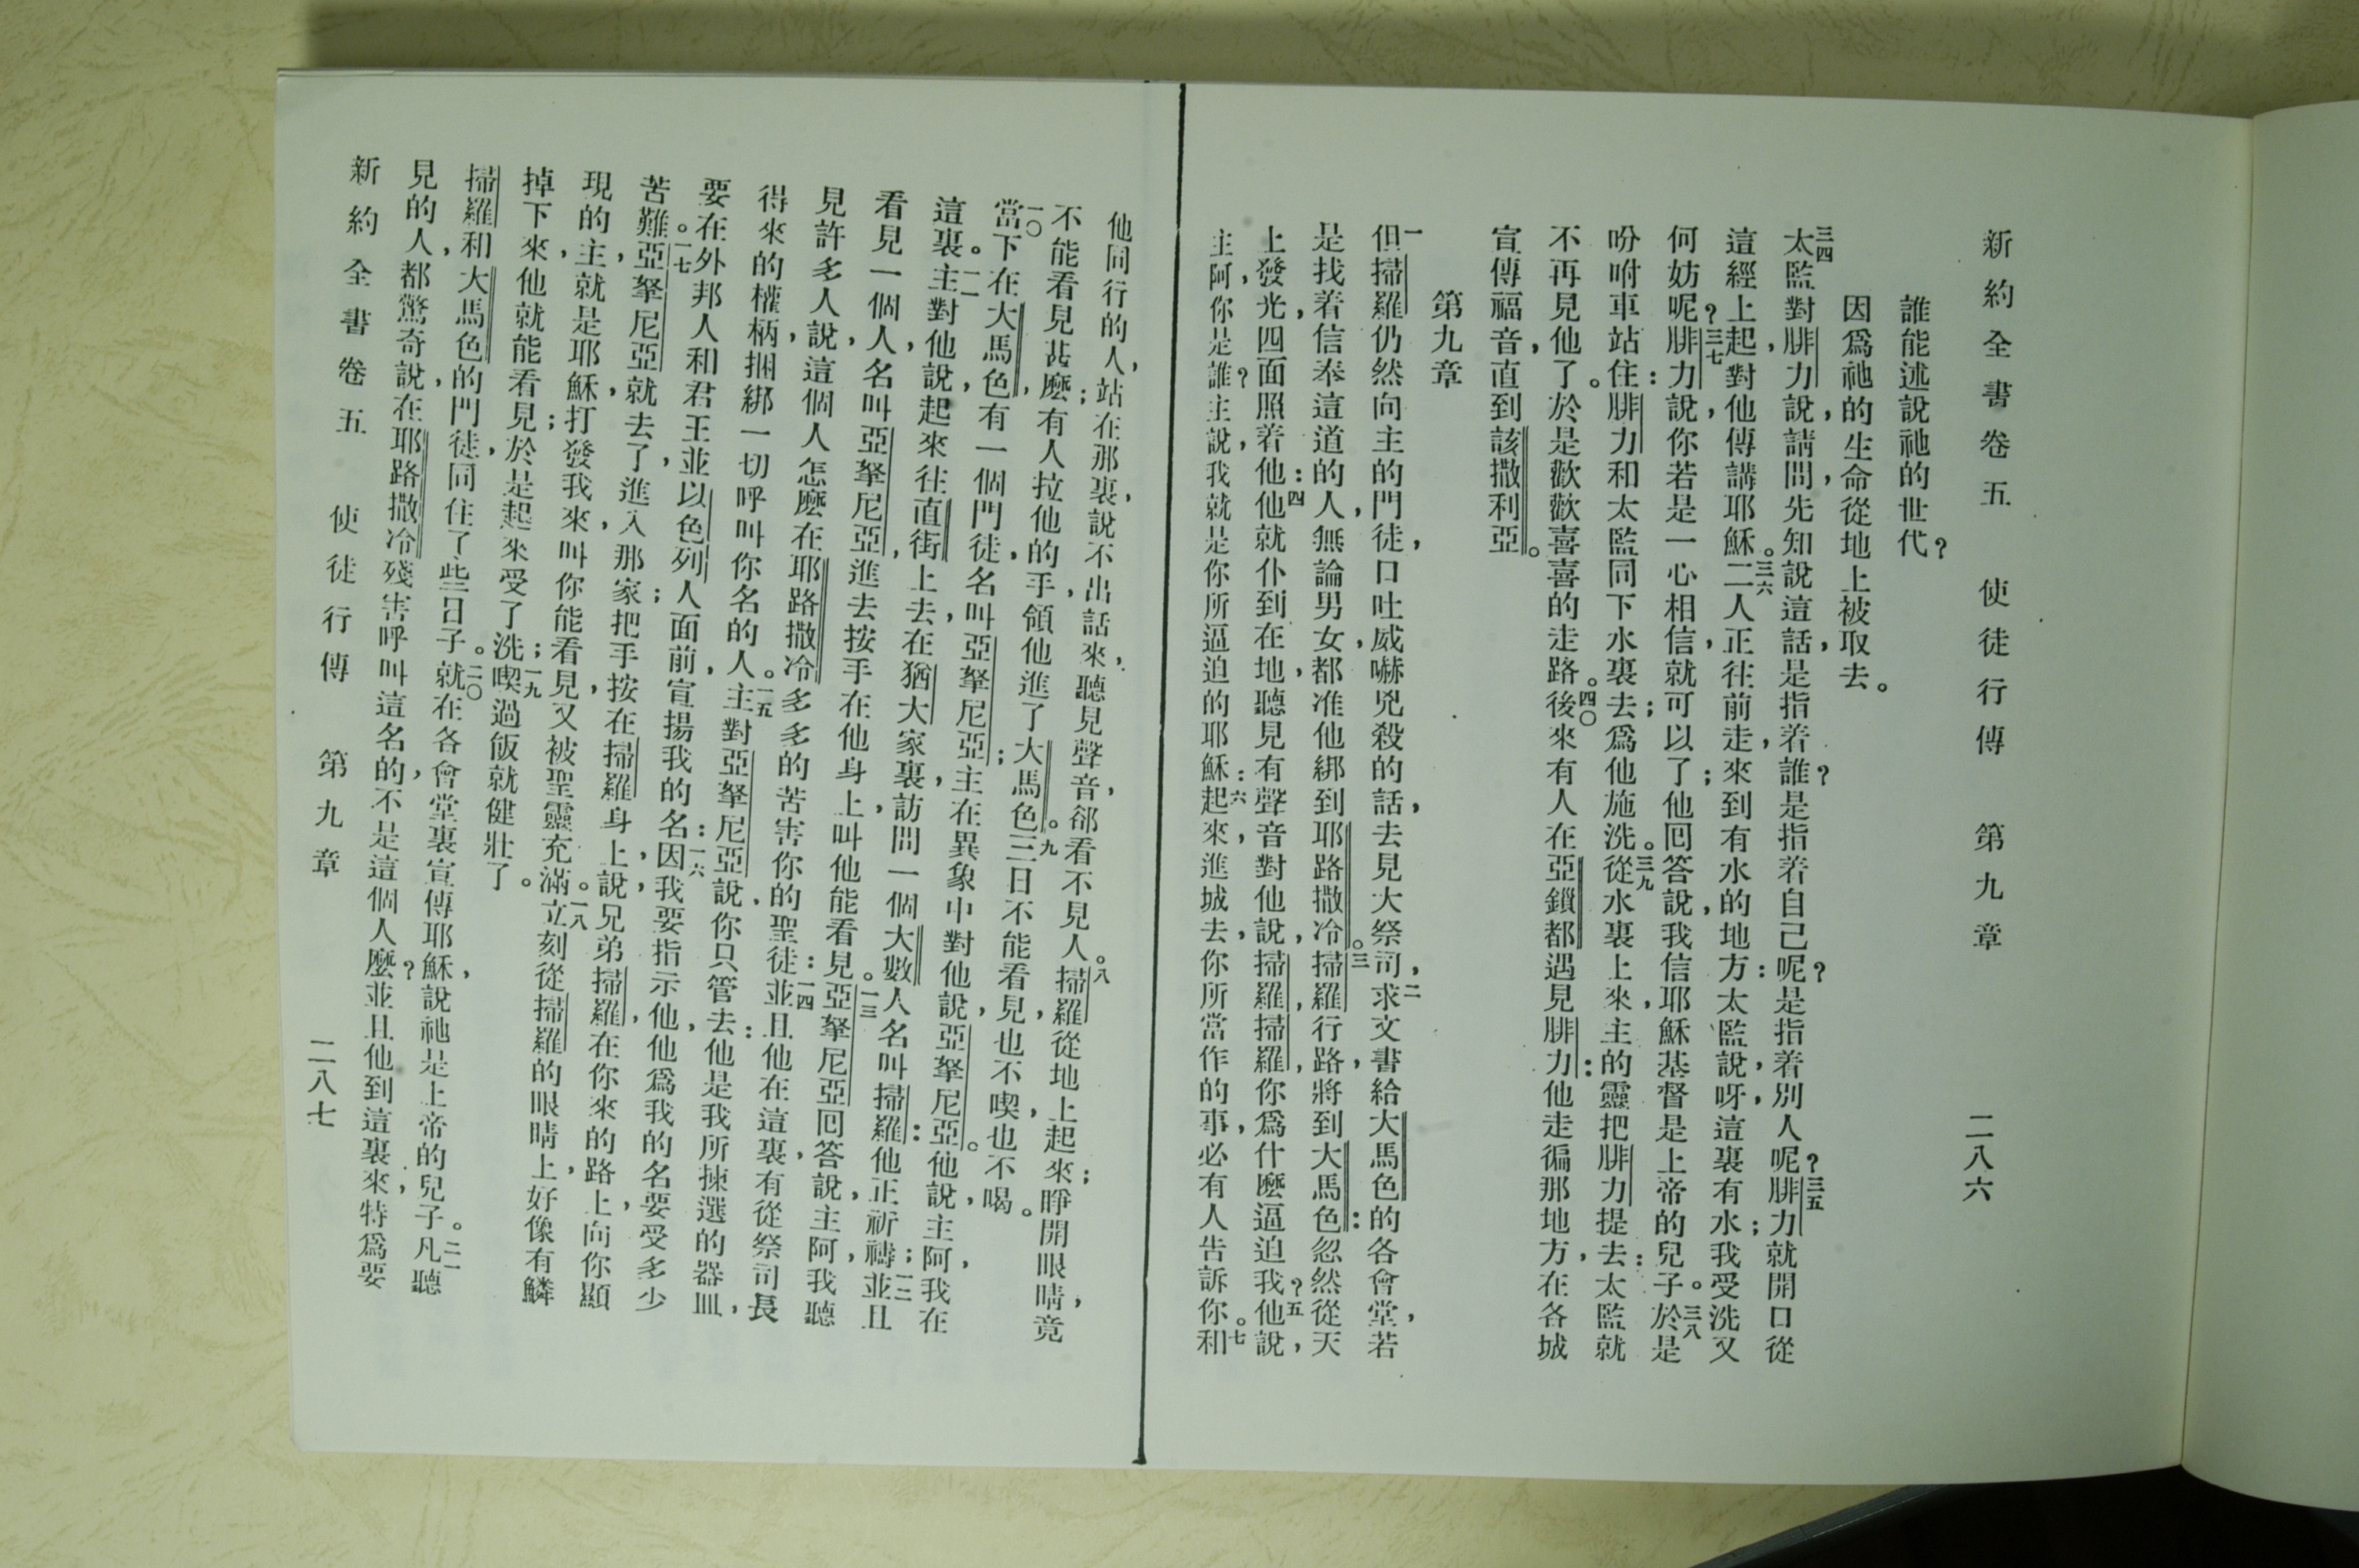 新約全書卷五　使徒行傳　第九章　二八六
誰能述說祂的世代?
因爲祂的生命從地上被取去。
三四太監對腓力說,請問,先知說這話,是指着誰?是指着自己呢?是指着別人呢?三五腓力就開口從
這經上起,對他傳講耶穌。三六二人正往前走,來到有水的地方:太監說,呀,這裏有水;我受洗又
何妨呢?三七腓力說,你若是一心相信,就可以了;他囘答說,我信耶穌基督是上帝的兒子。三八於是
吩咐車站住:腓力和太監同下水裏去;爲他施洗。三九從水裏上來,主的靈把腓力提去:太監就
不再見他了。於是歡歡喜喜的走路。四〇後來有人在亞鎖都遇見腓力:他走徧那地方,在各城
宣傳福音,直到該撒利亞。
第九章
一但掃羅仍然向主的門徒,口吐威嚇兇殺的話,去見大祭司,二求文書給大馬色的各會堂,若
是找着信奉這道的人,無論男女,都准他綁到耶路撒冷。三掃羅行路,將到大馬色:忽然從天
上發光,四面照着他:四他就仆到在地,聽見有聲音對他說,掃羅,掃羅,你爲什麼逼迫我?五他說,
主阿,你是誰?主說,我就是你所逼迫的耶穌:六起來,進城去,你所當作的事,必有人告訴你。七和
他同行的人,站在那裏,說不出話來,聽見聲音,郤看不見人。八掃羅從地上起來;睜開眼睛,竟
不能看見甚麼;有人拉他的手,領他進了大馬色。九三日不能看見,也不喫,也不喝。
一〇當下在大馬色,有一個門徒,名叫亞拏尼亞;主在異象中對他說,亞拏尼亞。他說,主阿,我在
這裏。一一主對他說,起來,往直街上去,在猶大家裏,訪問一個大數人名叫掃羅:他正祈禱;一二並且
看見一個人,名叫亞拏尼亞,進去按手在他身上,叫他能看見。一三亞拏尼亞囘答說,主阿,我聽
見許多人,說這個人怎麼在耶路撒冷多多的苦害你的聖徒:一四並且他在這裏,有從祭司長
得來的權柄,捆綁一切呼叫你名的人。一五主對亞拏尼亞說,你只管去:他是我所揀選的器皿,
要在外邦人和君王並以色列人面前,宣揚我的名:一六因我要指示他,他爲我的名要受多少
苦難。一七亞拏尼亞就去了,進入那家;把手按在掃羅身上,說,兄弟掃羅,在你來的路上,向你顯
現的主,就是耶穌,打發我來,叫你能看見,又被聖靈充滿。一八立刻從掃羅的眼睛上,好像有鱗
掉下來,他就能看見;於是起來受了洗;一九喫過飯就健壯了。
掃羅和大馬色的門徒,同住了些日子。二〇就在各會堂裏宣傳耶穌,說祂是上帝的兒子。二一凡聽
見的人,都驚奇,說,在耶路撒冷殘害呼叫這名的,不是這個人麼?並且他到這裏來,特爲要
新約全書卷五　使徒行傳　第九章　二八七